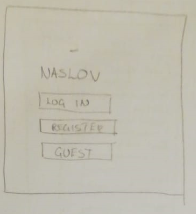 NASLOV
LOG IN
REGISTER
GUEST